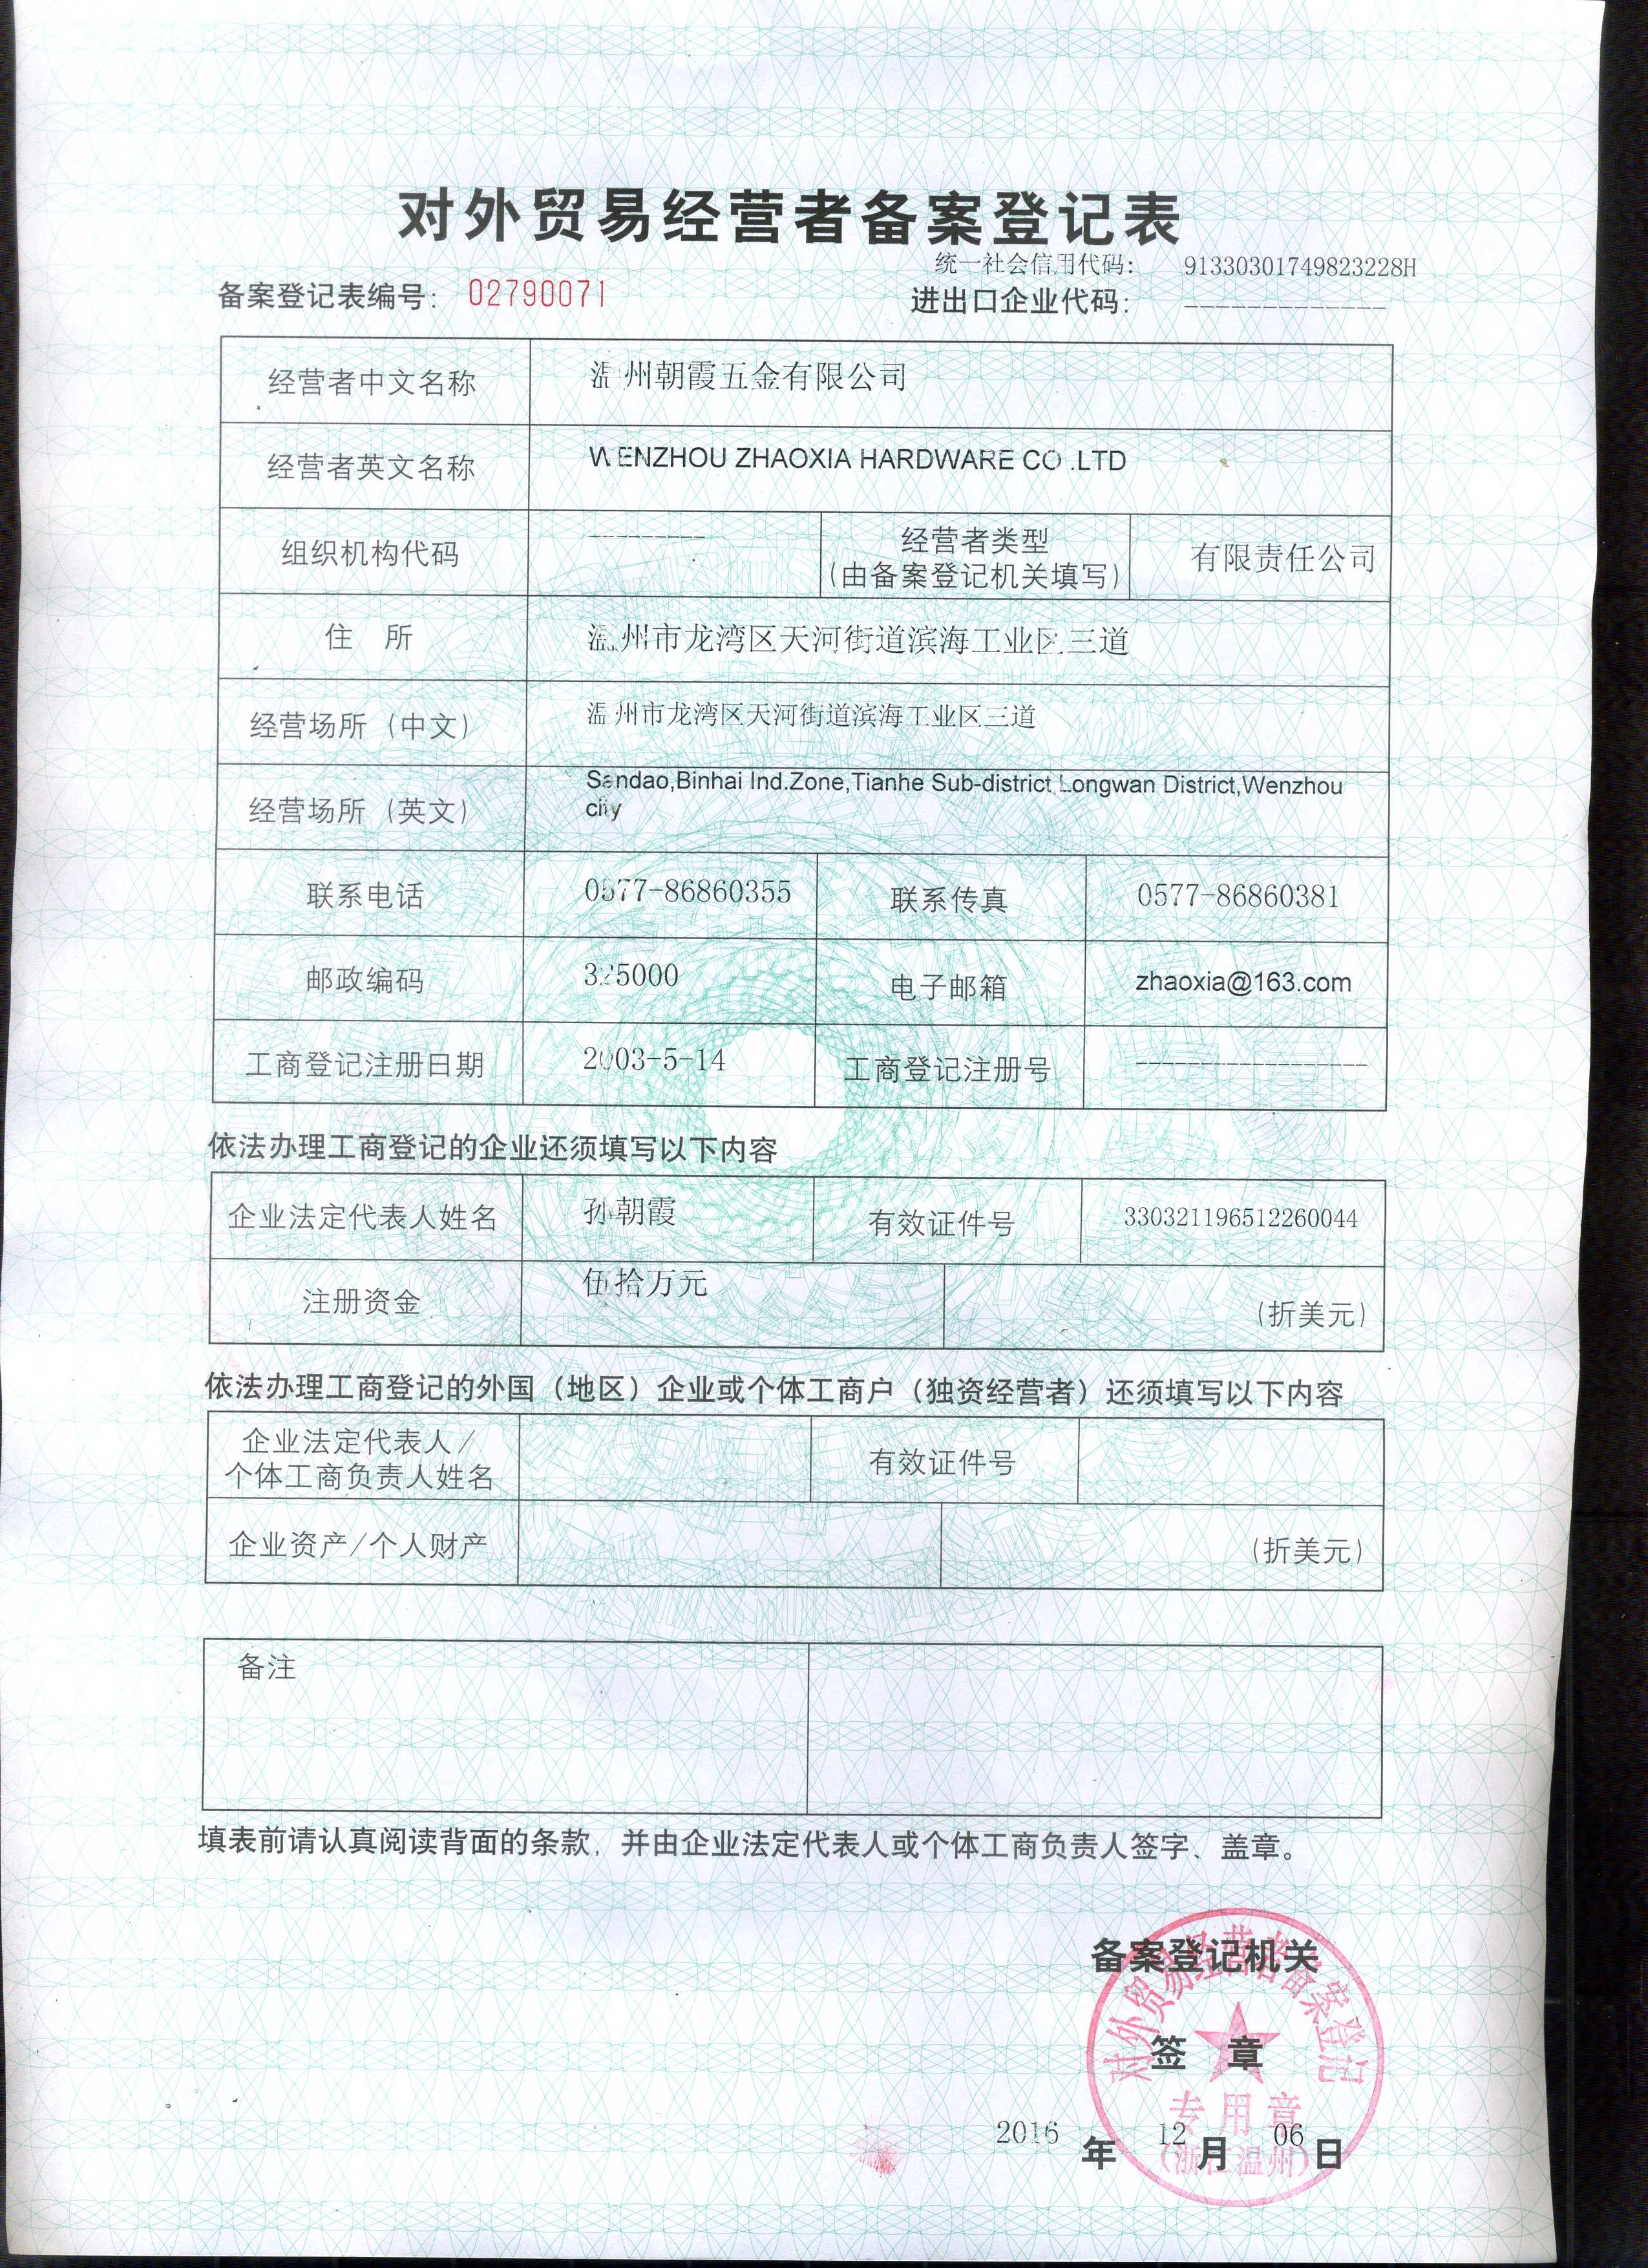 对外贸易经营者备案登记表
统一社会信用代码： 91330301749823228H
备案登记表编号： 02790071 进出口企业代码： -------------
经营者中文名称 温州朝霞五金有限公司
经营者英文名称 WENZHOU ZHAOXIA HARDWARE CO .LTD
组织机构代码 --------- 经营者类型 有限责任公司
(由备案登记机关填写)
住 所 温州市龙湾区天河街道滨海工业区三道
经营场所（中文） 温州市龙湾区天河街道滨海工业区三道
经营场所（英文） Sandao,Binhai Ind.Zone,Tianhe Sub-district,Longwan District,Wenzhou
city
联系电话 0577-86860355 联系传真 0577-86860381
邮政编码 325000 电子邮箱 zhaoxia@163.com
工商登记注册日期 2003-5-14 工商登记注册号 ------------------
依法办理工商登记的企业还须填写以下内容
企业法定代表人姓名 孙朝霞 有效证件号 330321196512260044
注册资金 伍拾万元 (折美元)
依法办理工商登记的外国（地区）企业或个体工商户（独资经营者）还须填写以下内容
企业法定代表人/
个体工商负责人姓名 有效证件号
企业资产/个人财产 (折美元)
备注
填表前请认真阅读背面的条款，并由企业法定代表人或个体工商负责人签字、盖章。
备案登记机关
签 章
对外贸易经营者备案登记
专用章
(浙江温州)
2016 年 12 月 06 日